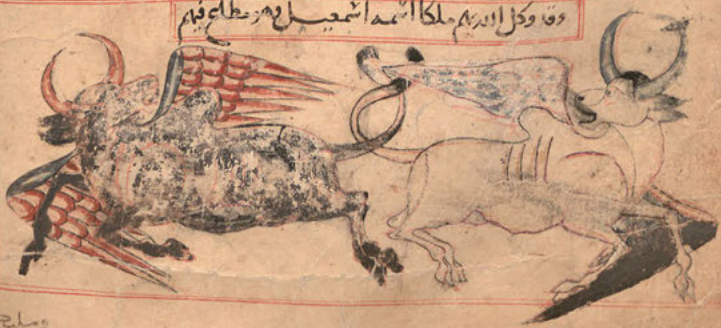 وقد وكل الله بهم ملكا اسمه اشمعيل وهو مطلع فيهم